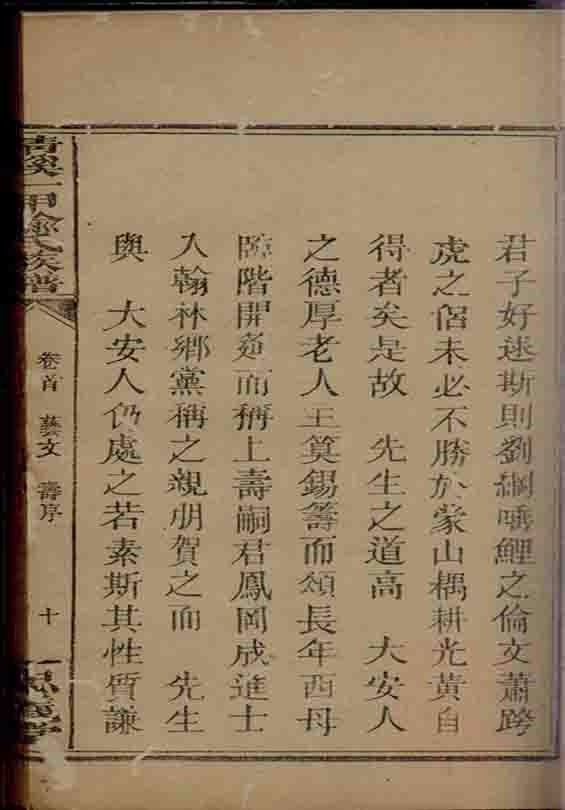 君子好逑斯則劉綱唾鯉之倫文蕭跨
虎之侶未必不勝於蒙山耦耕光黃自
得者矣是故　先生之道高　大安人
之德厚老人王筭錫籌而頌長年西母
臨階開筵而稱上壽嗣君鳳岡成進士
入翰林鄉黨稱之親朋賀之而　先生
與　大安人仍處之若素斯其性質謙
青溪一甲徐氏族譜　卷首　藝文　壽序　十